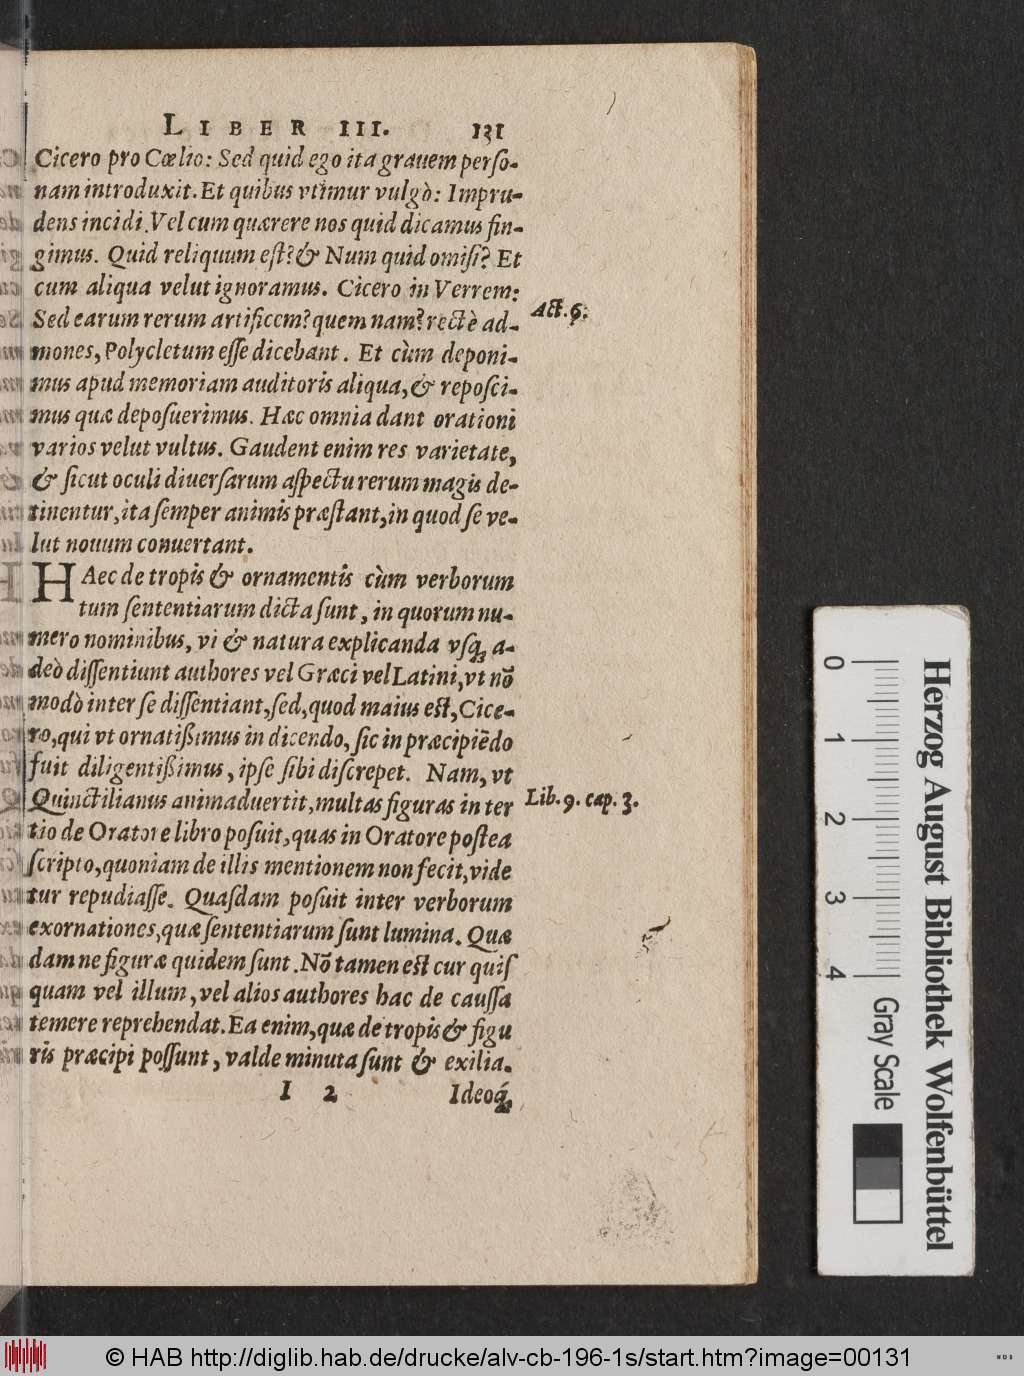 LIBER III. 131
Cicero pro Cœlio: Sed quid ego ita grauem perſo-
nam introduxit. Et quibus vtimur vulgò: Impru-
dens incidi. Vel cum quærere nos quid dicamus fin-
gimus. Quid reliquum eſt? & Num quid omiſi? Et
cum aliqua velut ignoramus. Cicero in Verrem:
Act. 6.
Sed earum rerum artificem? quem nam? rectè ad-
mones, Polycletum eſſe dicebant. Et cùm deponi-
mus apud memoriam auditoris aliqua, & repoſci-
mus quæ depoſuerimus. Hæc omnia dant orationi
varios velut vultus. Gaudent enim res varietate,
& ſicut oculi diuerſarum aſpectu rerum magis de-
tinentur, ita ſemper animis præſtant, in quod ſe ve-
lut nouum conuertant.
HAec de tropis & ornamentis cùm verborum
tum ſententiarum dicta ſunt, in quorum nu-
mero nominibus, vi & natura explicanda vſq; a-
deò diſſentiunt authores vel Græci vel Latini, vt nõ
modò inter ſe diſſentiant, ſed, quod maius eſt, Cice-
ro, qui vt ornatißimus in dicendo, ſic in præcipiẽdo
fuit diligentißimus, ipſe ſibi diſcrepet. Nam, vt
Quinctilianus animaduertit, multas figuras in ter
Lib. 9. cap. 3.
tio de Oratore libro poſuit, quas in Oratore poſtea
ſcripto, quoniam de illis mentionem non fecit, vide
tur repudiaſſe. Quaſdam poſuit inter verborum
exornationes, quæ ſententiarum ſunt lumina. Quæ
dam ne figuræ quidem ſunt. Nõ tamen eſt cur quiſ
quam vel illum, vel alios authores hac de cauſſa
temere reprehendat. Ea enim, quæ de tropis & figu
ris præcipi poſſunt, valde minuta ſunt & exilia.
I 2 Ideoq́;
Herzog August Bibliothek Wolfenbüttel
0 1 2 3 4 Gray Scale
© HAB http://diglib.hab.de/drucke/alv-cb-196-1s/start.htm?image=00131